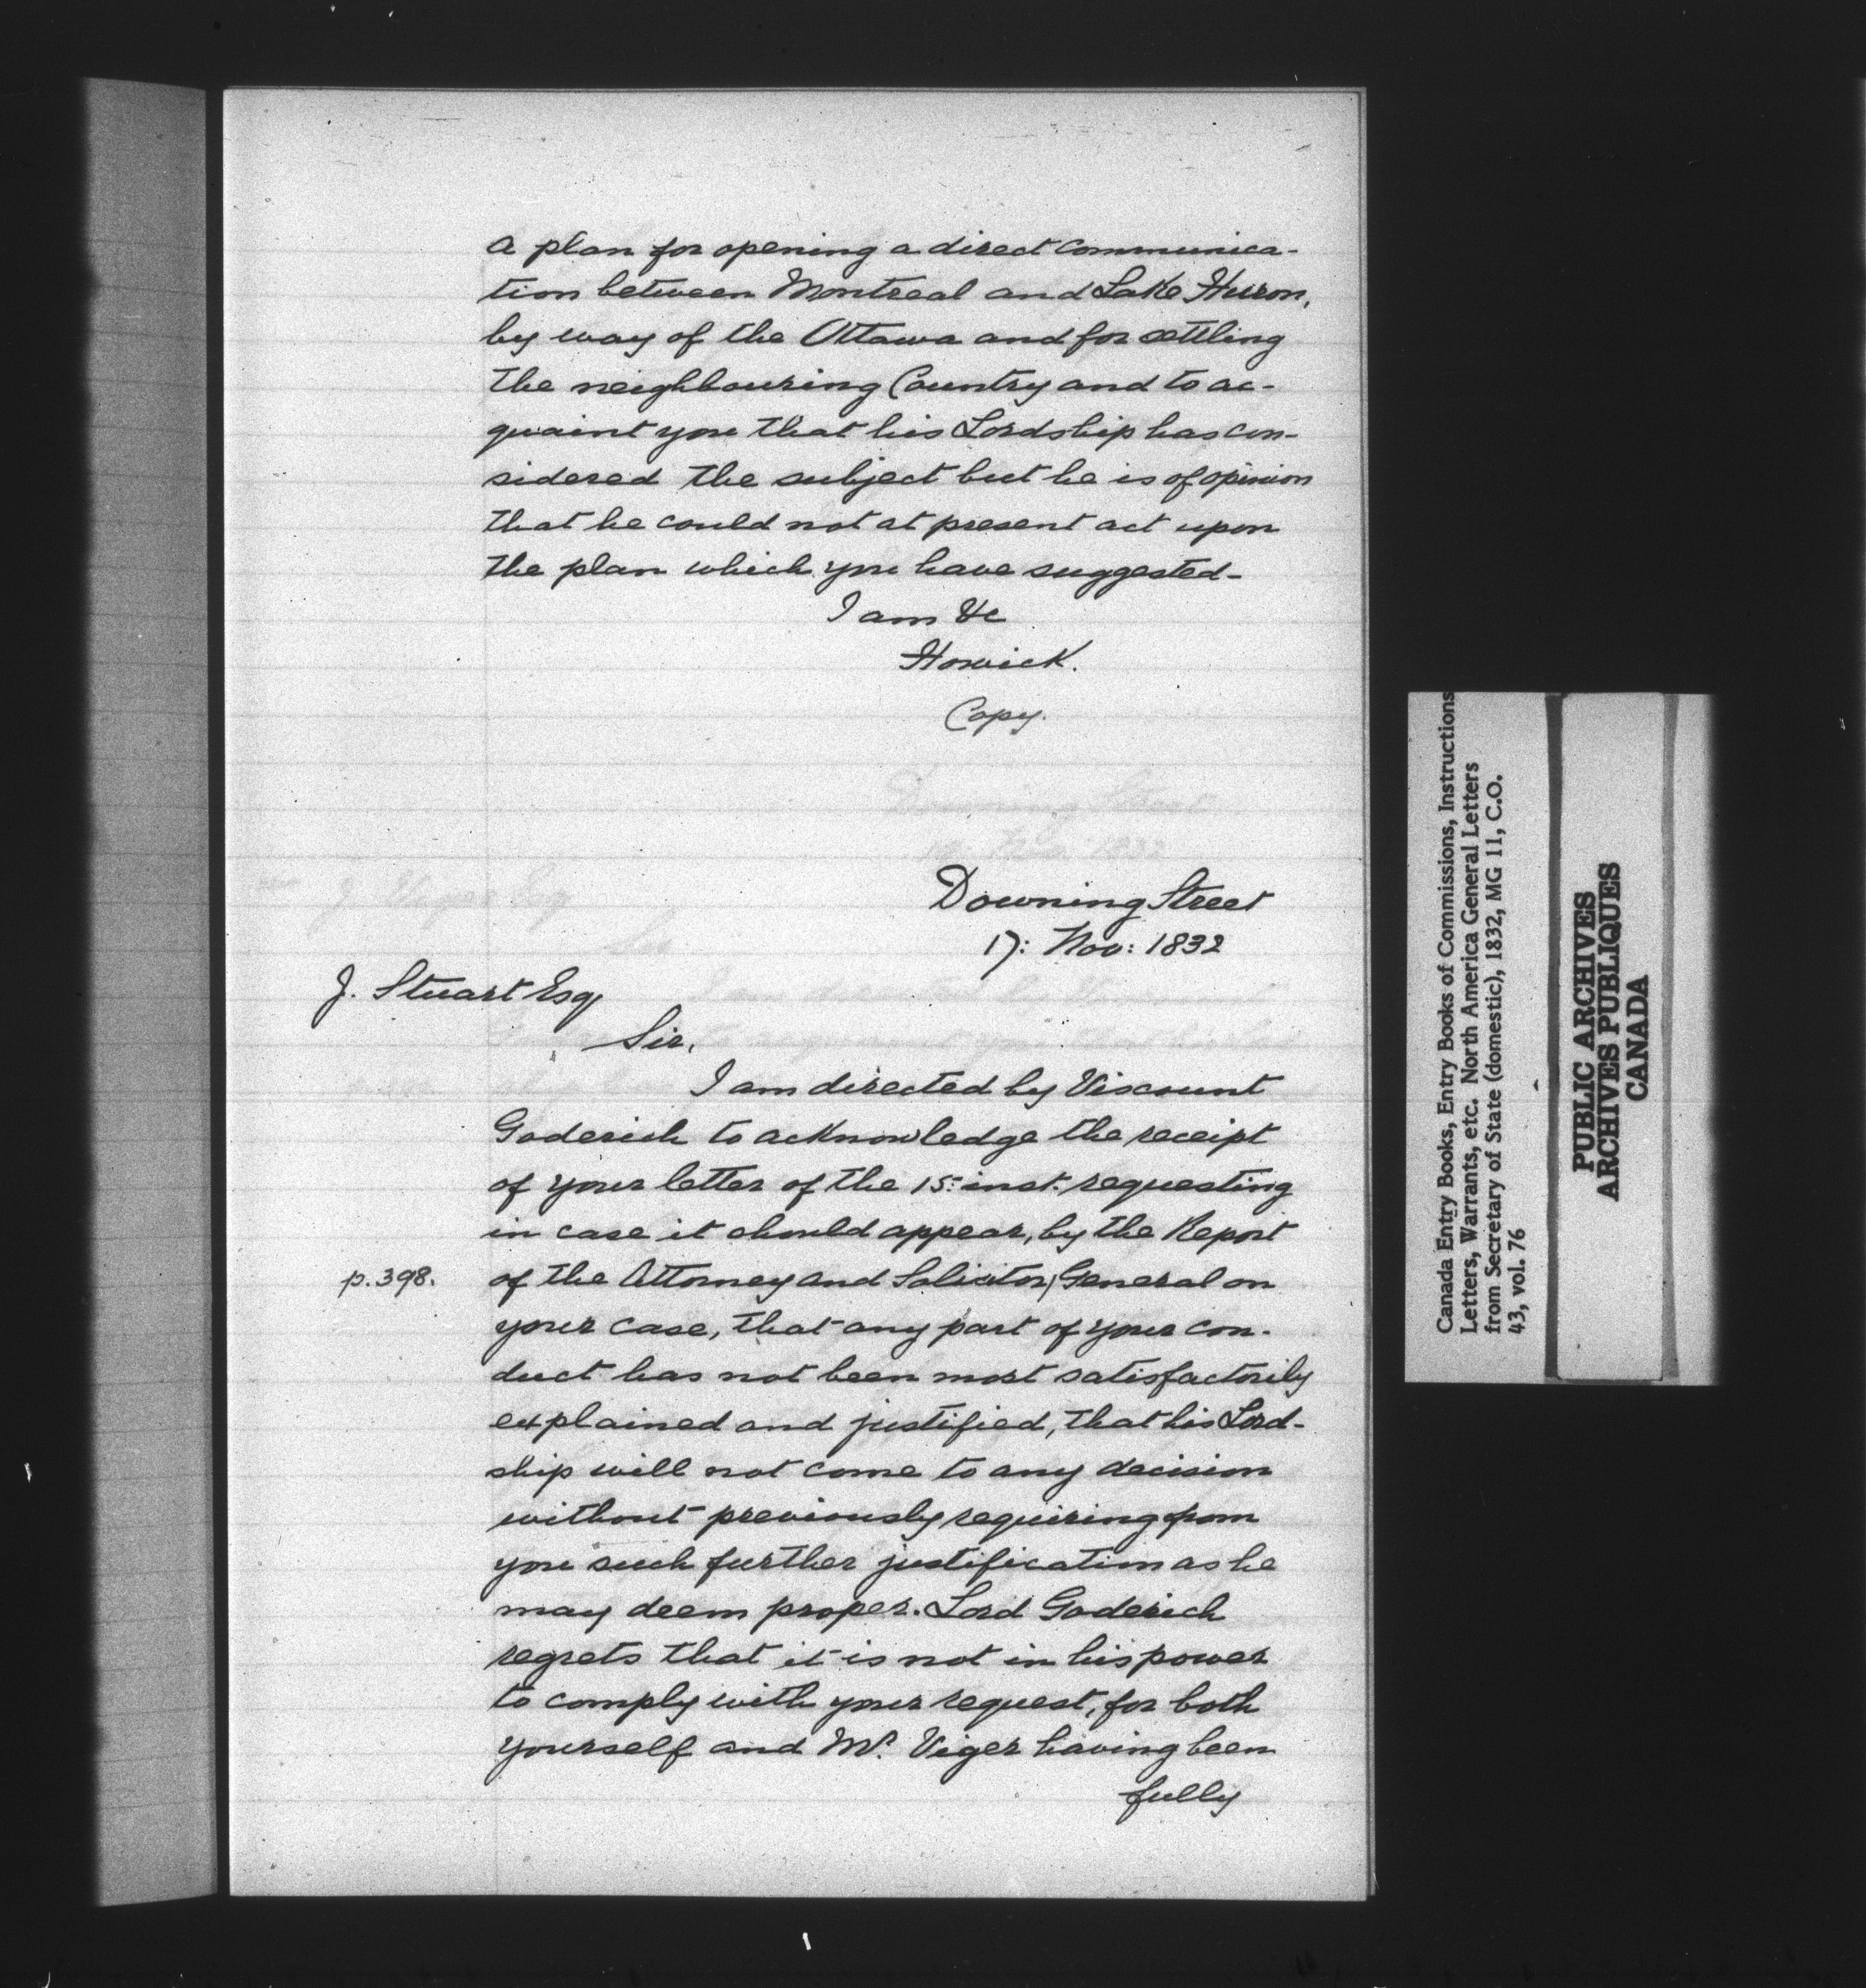 a plan for opening a direct communica-
tion between Montreal and Lake Huron,
by way of the Ottawa and for settling
the neighbouring Country and to ac-
quaint you that his Lordship has con-
sidered the subject but he is of opinion
that he could not at present act upon
the plan which you have suggested-
I am &c
Howick.
Copy.
Downing Street
17: Nov: 1832
J. Stuart Esq
Sir,
I am directed by Viscount
Goderich to acknowledge the receipt
of your letter of the 15: inst. requesting
in case it should appear, by the Report
p.398. of the Attorney and Solicitor General on
your case, that any part of your con-
duct has not been most satisfactorily
explained and justified, that his Lord-
ship will not come to any decision
without previously requiring from
you such further justification as he
may deem proper. Lord Goderich
regrets that it is not in his power
to comply with your request, for both
yourself and Mr. Viger having been
fully
Canada Entry Books, Entry Books of Commissions, Instructions
Letters, Warrants, etc. North America General Letters
from Secretary of State (domestic), 1832, MG 11, C.O.
43, vol. 76
PUBLIC ARCHIVES
ARCHIVES PUBLIQUES
CANADA